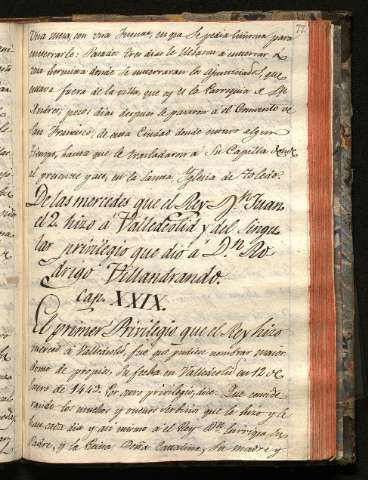 77.
Una mesa, con una Fuente, en que se pedia limosna para
enterrarlo: Pasados tres dias le llebaron a enterrar á
una hermita donde se enterraban los ajusticiados, que
estava fuera de la villa, que oy es la Parroquia de Sn
Andres; pocos dias despues le pasaron á el Convento de
San Francisco, de esta Ciudad donde estuvo algun
tiempo, hasta que le trasladaron a Su Capilla donde
al presente yace, en la Santa Iglesia de Toledo.
De las mercedes que el Rey Dn Juan
el 2. hizo á Valladolid y del Singu
lar privilegio que dió á Dn Ro
drigo Villandrando.
Cap. XXIX.
El primer Privilegio que el Rey hizo
merced á Valladolid, fué que pudiese nombrar mayor
domo de propios. Su fecha en Valladolid en 12 de
de 1442. Por otro privilegio, dice: Que conside
rando los muchos y buenos servicios que le hizo y le
hace cada dia y asi mismo á el Rey Dn Enrrique Su
Padre, y la Reina Doña Catalina, Su madre y